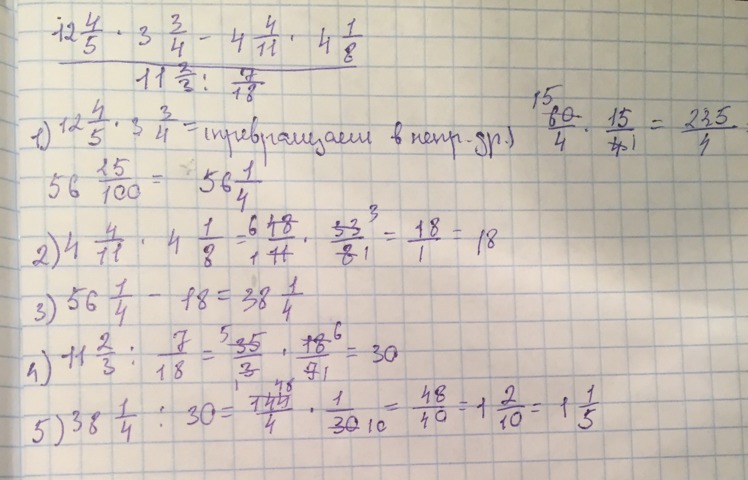 12 4/5 · 3 3/4 - 4 4/11 · 4 1/8
11 2/3 : 7/18
1) 12 4/5 · 3 3/4 = (превращаем в непр. др.) 60/4 15 · 15/4 1 = 225/4 =
56 25/100 = 56 1/4
2) 4 4/11 · 4 1/8 = 6 48/11 1 · 33/8 3 1 = 18/1 = 18
3) 56 1/4 - 18 = 38 1/4
4) 11 2/3 : 7/18 = 5 35/3 1 · 18/7 6 1 = 30
5) 38 1/4 : 30 = 144/4 48 · 1/30 10 = 48/40 = 1 2/10 = 1 1/5